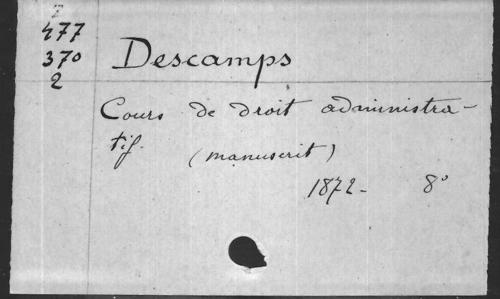 477
370
2
Descamps
Cours de droit administra-
tif.
(manuscrit)
1872- 8°